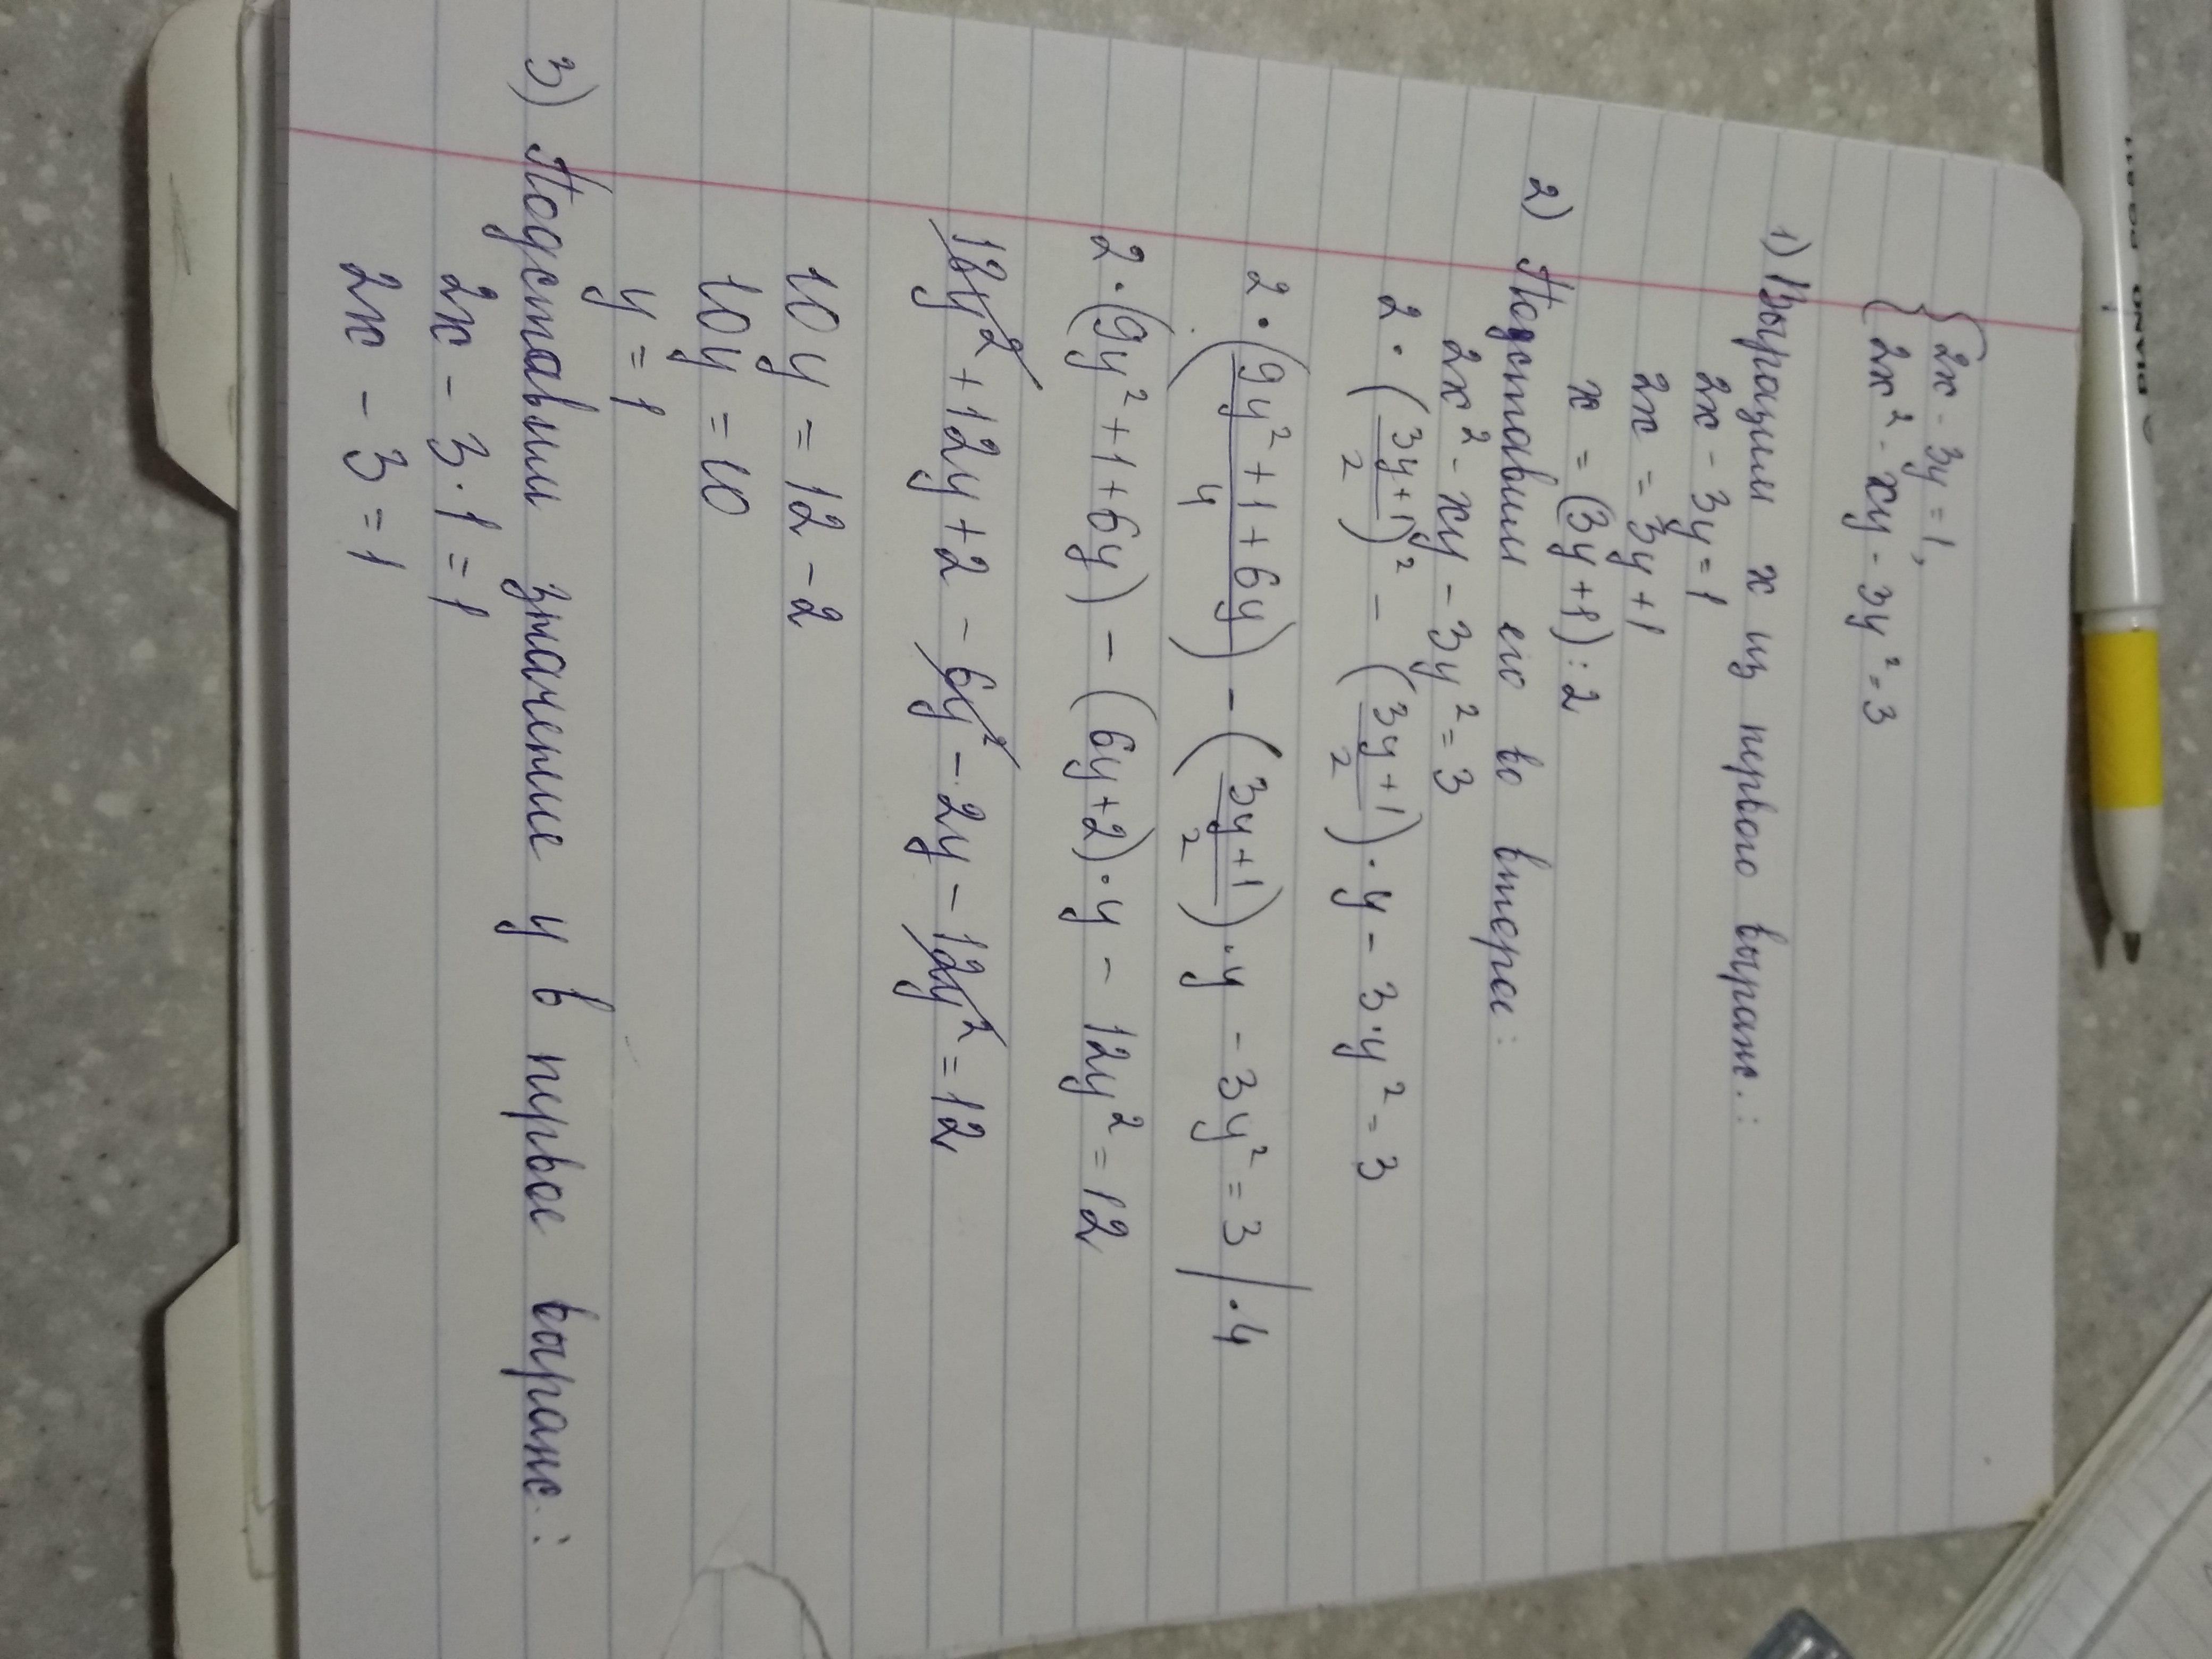 {2x - 3y = 1,
{2x² - xy - 3y² = 3
1) Выразим x из первого выраж.:
2x - 3y = 1
2x = 3y + 1
x = (3y + 1) : 2
2) Подставим его во второе:
2x² - xy - 3y² = 3
2 · ((3y + 1)/2)² - ((3y + 1)/2) · y - 3·y² = 3
2 · ((9y² + 1 + 6y)/4) - ((3y + 1)/2) · y - 3y² = 3 | · 4
2 · (9y² + 1 + 6y) - (6y + 2) · y - 12y² = 12
18y² + 12y + 2 - 6y² - 2y - 12y² = 12
10y = 12 - 2
10y = 10
y = 1
3) Подставим значение y в первое выраж.:
2x - 3 · 1 = 1
2x - 3 = 1